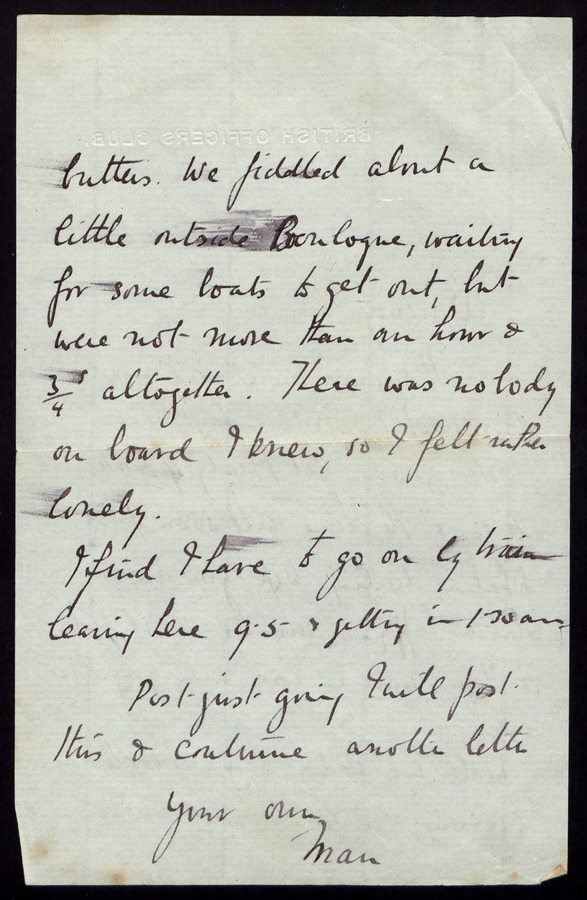 BRITISH OFFICERS CLUB.
butters. We fiddled about a
little outside Boulogne, waiting
for some boats to get out, but
were not more than an hour &
3/4 altogether. There was nobody
on board I knew, so I felt rather
lonely.
I find I have to go on by train
leaving here 9.5 & getting in 1.30 am
Post just going I will post
this & continue another letter
Your own
Man